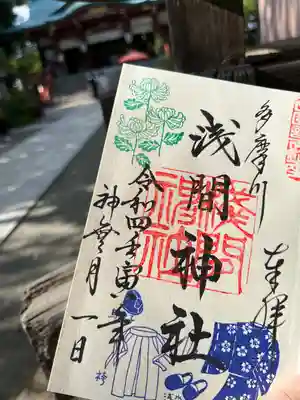 奉拝
多摩川
浅間神社
浅間
神社
令和四壬寅年
神無月一日
袴